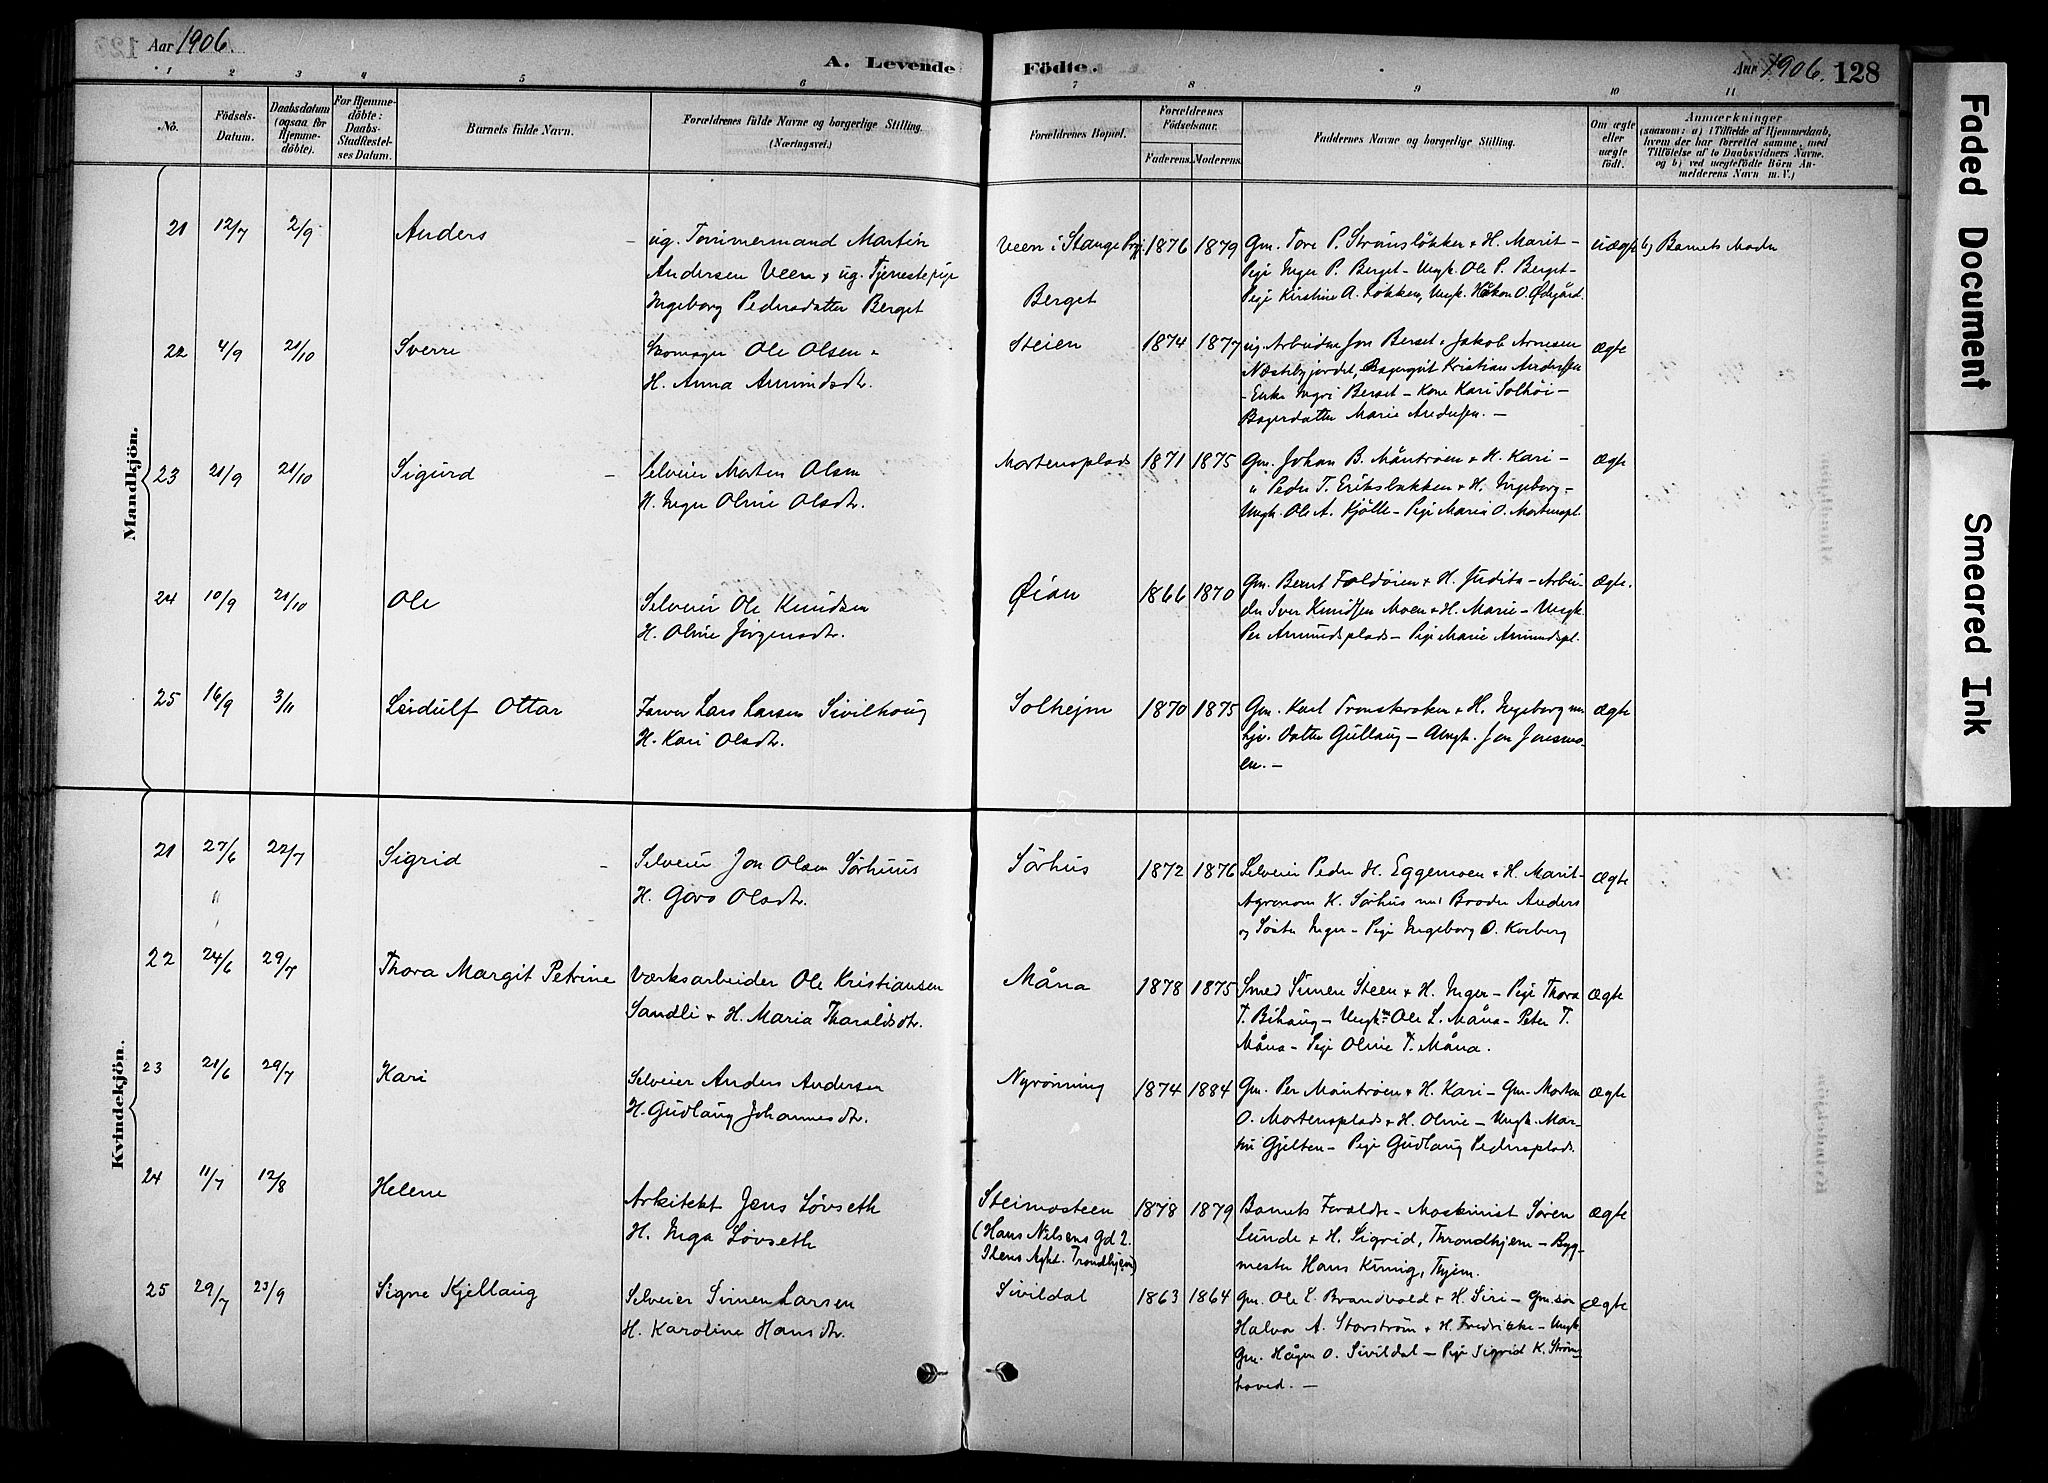 Aar 1906.
A. Levende Födte.
Aar 1906. 128
1 2 3 4 5 6 7 8 9 10 11
No.
Födsels-Datum.
Daabsdatum (ogsaa for Hjemme-döbte).
For Hjemme-döbte: Daabs-Stadfæstel-ses Datum.
Barnets fulde Navn.
Forældrenes fulde Navne og borgerlige Stilling. (Næringsvei.)
Forældrenes Bopæl.
Forældrenes Födselsaar.
Faderens. Moderens.
Faddernes Navne og borgerlige Stilling.
Om ægte eller uægte födt.
Anmærkninger
(saasom: a) i Tilfælde af Hjemmedaab, hvem der har forrettet samme, med Tilföielse af to Daabsvidners Navne, og b) ved uægtefödte Börn An-melderens Navn m. V.)
Mandkjön.
21 12/7 2/9 Anders - ug. Tømmermand Martin Veen i Stange Prgj. 1876 1879 Gm. Tore P. Strømsløkken & H. Marit - uægte b) Barnets Moder
Andersen Veen & ug. Tjenestepige Pige Inger P. Berget - Ungk. Ole P. Berget -
Ingeborg Pedersdatter Berget Berget Pige Kirstine A. Løkken, Ungk. Håkon O. Ødegård.
22 4/9 21/10 Sverre Skomager Ole Olsen & Steien 1874 1877 ug. Arbeider Jon Berset & Jakob Arnesen ægte
H. Anna Amundsdr. Næstebyjordet, Bagergut Kristian Anderssen
- Enke Ingri Berset - Kone Kari Solhøi -
Bagerdatter Marie Andersen. -
23 21/9 21/10 Sigurd - Selveier Morten Olsen Mortensplads 1871 1875 Gm. Johan B. Måntrøen & H. Kari - ægte
H. Inger Oline Olsdtr. " Peder T. Eriksbakken & H. Ingeborg -
Ungk. Ole A. Kjølle - Pige Maria O. Mortenspl.
24 10/9 21/10 Ole Selveier Ole Knudsen Øian 1866 1870 Gm. Bernt Foldøien & H. Judita - Arbei- ægte.
H. Oline Jørgensdtr. der Iver Knudssen Moen & H. Marie - Ungk.
Per Amundsplads - Pige Marie Amundspl.
25 16/9 3/11 Leidulf Ottar Farver Lars Larsen Sivilhaug Solhejm 1870 1875 Gm. Karl Tronskroken & H. Ingeborg ægte
H. Kari Olsdtr. Datter Gullaug - Ungk. Jon Jonsmo-
en. -
Kvindekjön.
21 27/6 22/7 Sigrid - Selveier Jon Olsen Sørhuus Sørhus 1872 1876 Selveier Peder H. Eggemoen & H. Marit - ægte
H. Goro Olsdtr. Agronom K. Sørhus med Broder Anders
og Søster Inger - Pige Ingeborg O. Korberg
22 24/6 29/7 Thora Margit Petrine Værksarbeider Ole Kristiansen Måna 1878 1875 Smed Simen Steen & H. Inger - Pige Thora ægte
Sandli & H. Maria Tharaldsdtr. T. Bihaug - Ungk. Ole L. Måna - Peter T.
Måna - Pige Oline T. Måna.
23 21/6 29/7 Kari Selveier Anders Andersen Nyrønning 1874 1884 Gm. Per Måntrøen & H. Kari - Gm. Morten ægte
H. Gudlaug Johannesdtr. O. Mortensplads & H. Oline - Ungk. Mar-
tin Gjelten - Pige Gudlaug Pedersplads.
24 11/7 12/8 Helene Arkitekt Jens Løvseth Steimosteen 1878 1879 Barnets Forældre - Maskinist Søren ægte
H. Inga Løvseth (Hans Nilsens Gd 2. Lunde & H. Sigrid, Throndhjem - Byg-
Ilens Sgkt. Trondhjem) mester Hans König, Thjem.
25 29/7 23/9 Signe Kjellaug Selveier Simen Larsen Sivildal 1863 1864 Gm. Ole L. Brandvold & H. Siri - Gm.søn ægte
H. Karoline Hansdtr. Halvor A. Storstrøm & H. Fredrikke - Ungk.
Gm. Hågen O. Sivildal - Pige Sigrid K. Strøm-
hoved. -
Faded Document
Smeared Ink